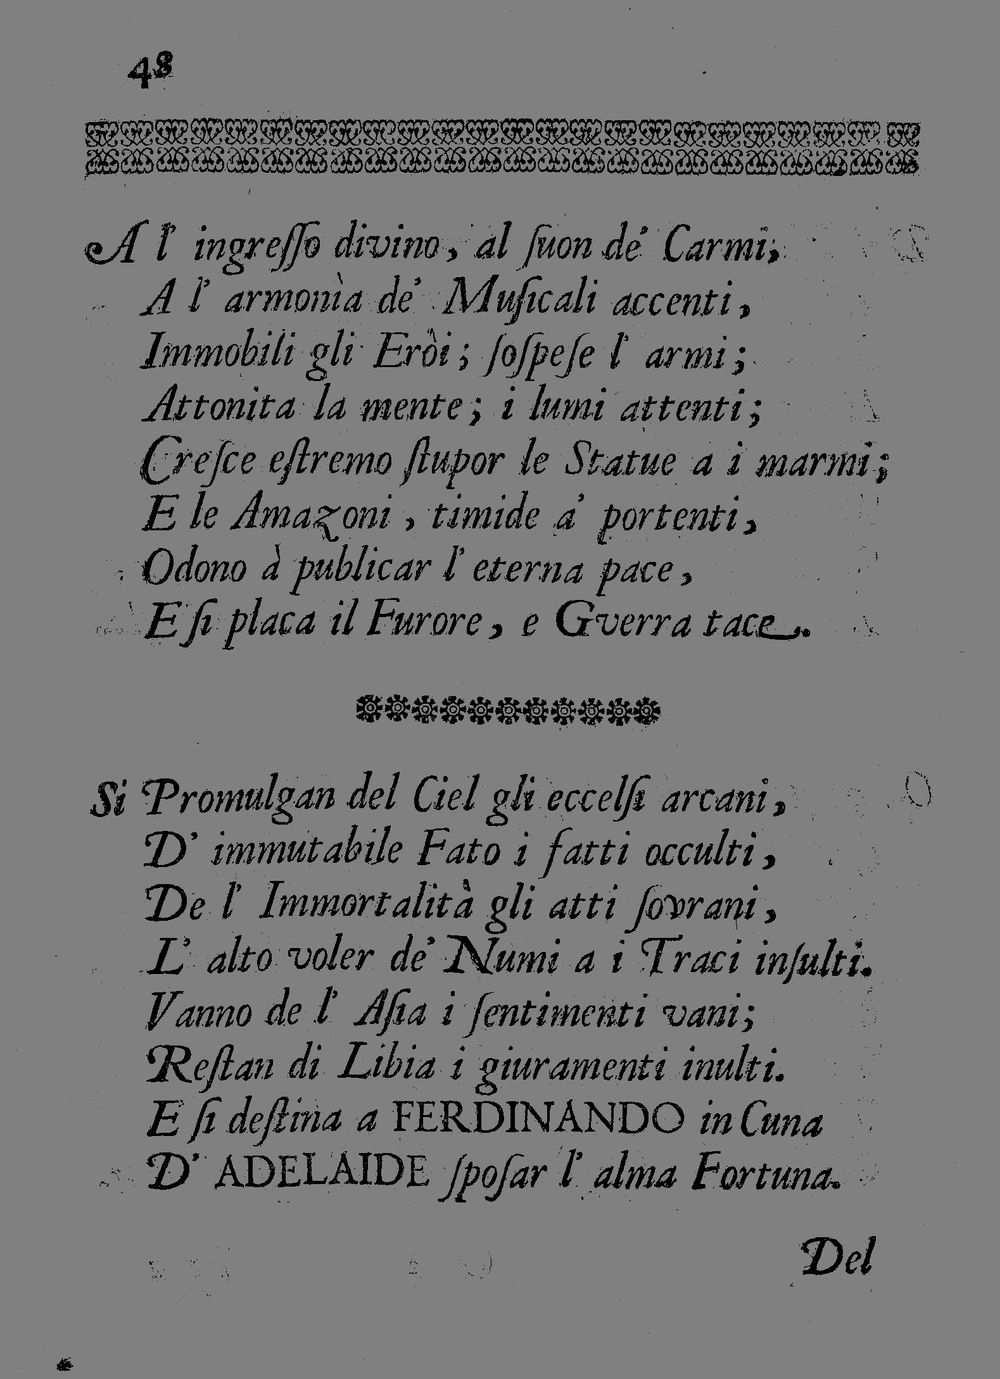 48
A l' ingreſſo divino, al ſuon de' Carmi,
A l' armonìa de' Muſicali accenti,
Immobili gli Eròi; ſoſpeſe l' armi;
Attonita la mente; i lumi attenti;
Creſce eſtremo ſtupor le Statue a i marmi;
E le Amazoni, timide a' portenti,
Odono à publicar l' eterna pace,
E ſi placa il Furore, e Gverra tace.
Si Promulgan del Ciel gli eccelſi arcani,
D' immutabile Fato i fatti occulti,
De l' Immortalità gli atti ſovrani,
L' alto voler de' Numi a i Traci inſulti.
Vanno de l' Aſia i ſentimenti vani;
Reſtan di Libia i giuramenti inulti.
E ſi deſtina a FERDINANDO in Cuna
D' ADELAIDE ſpoſar l' alma Fortuna.
Del